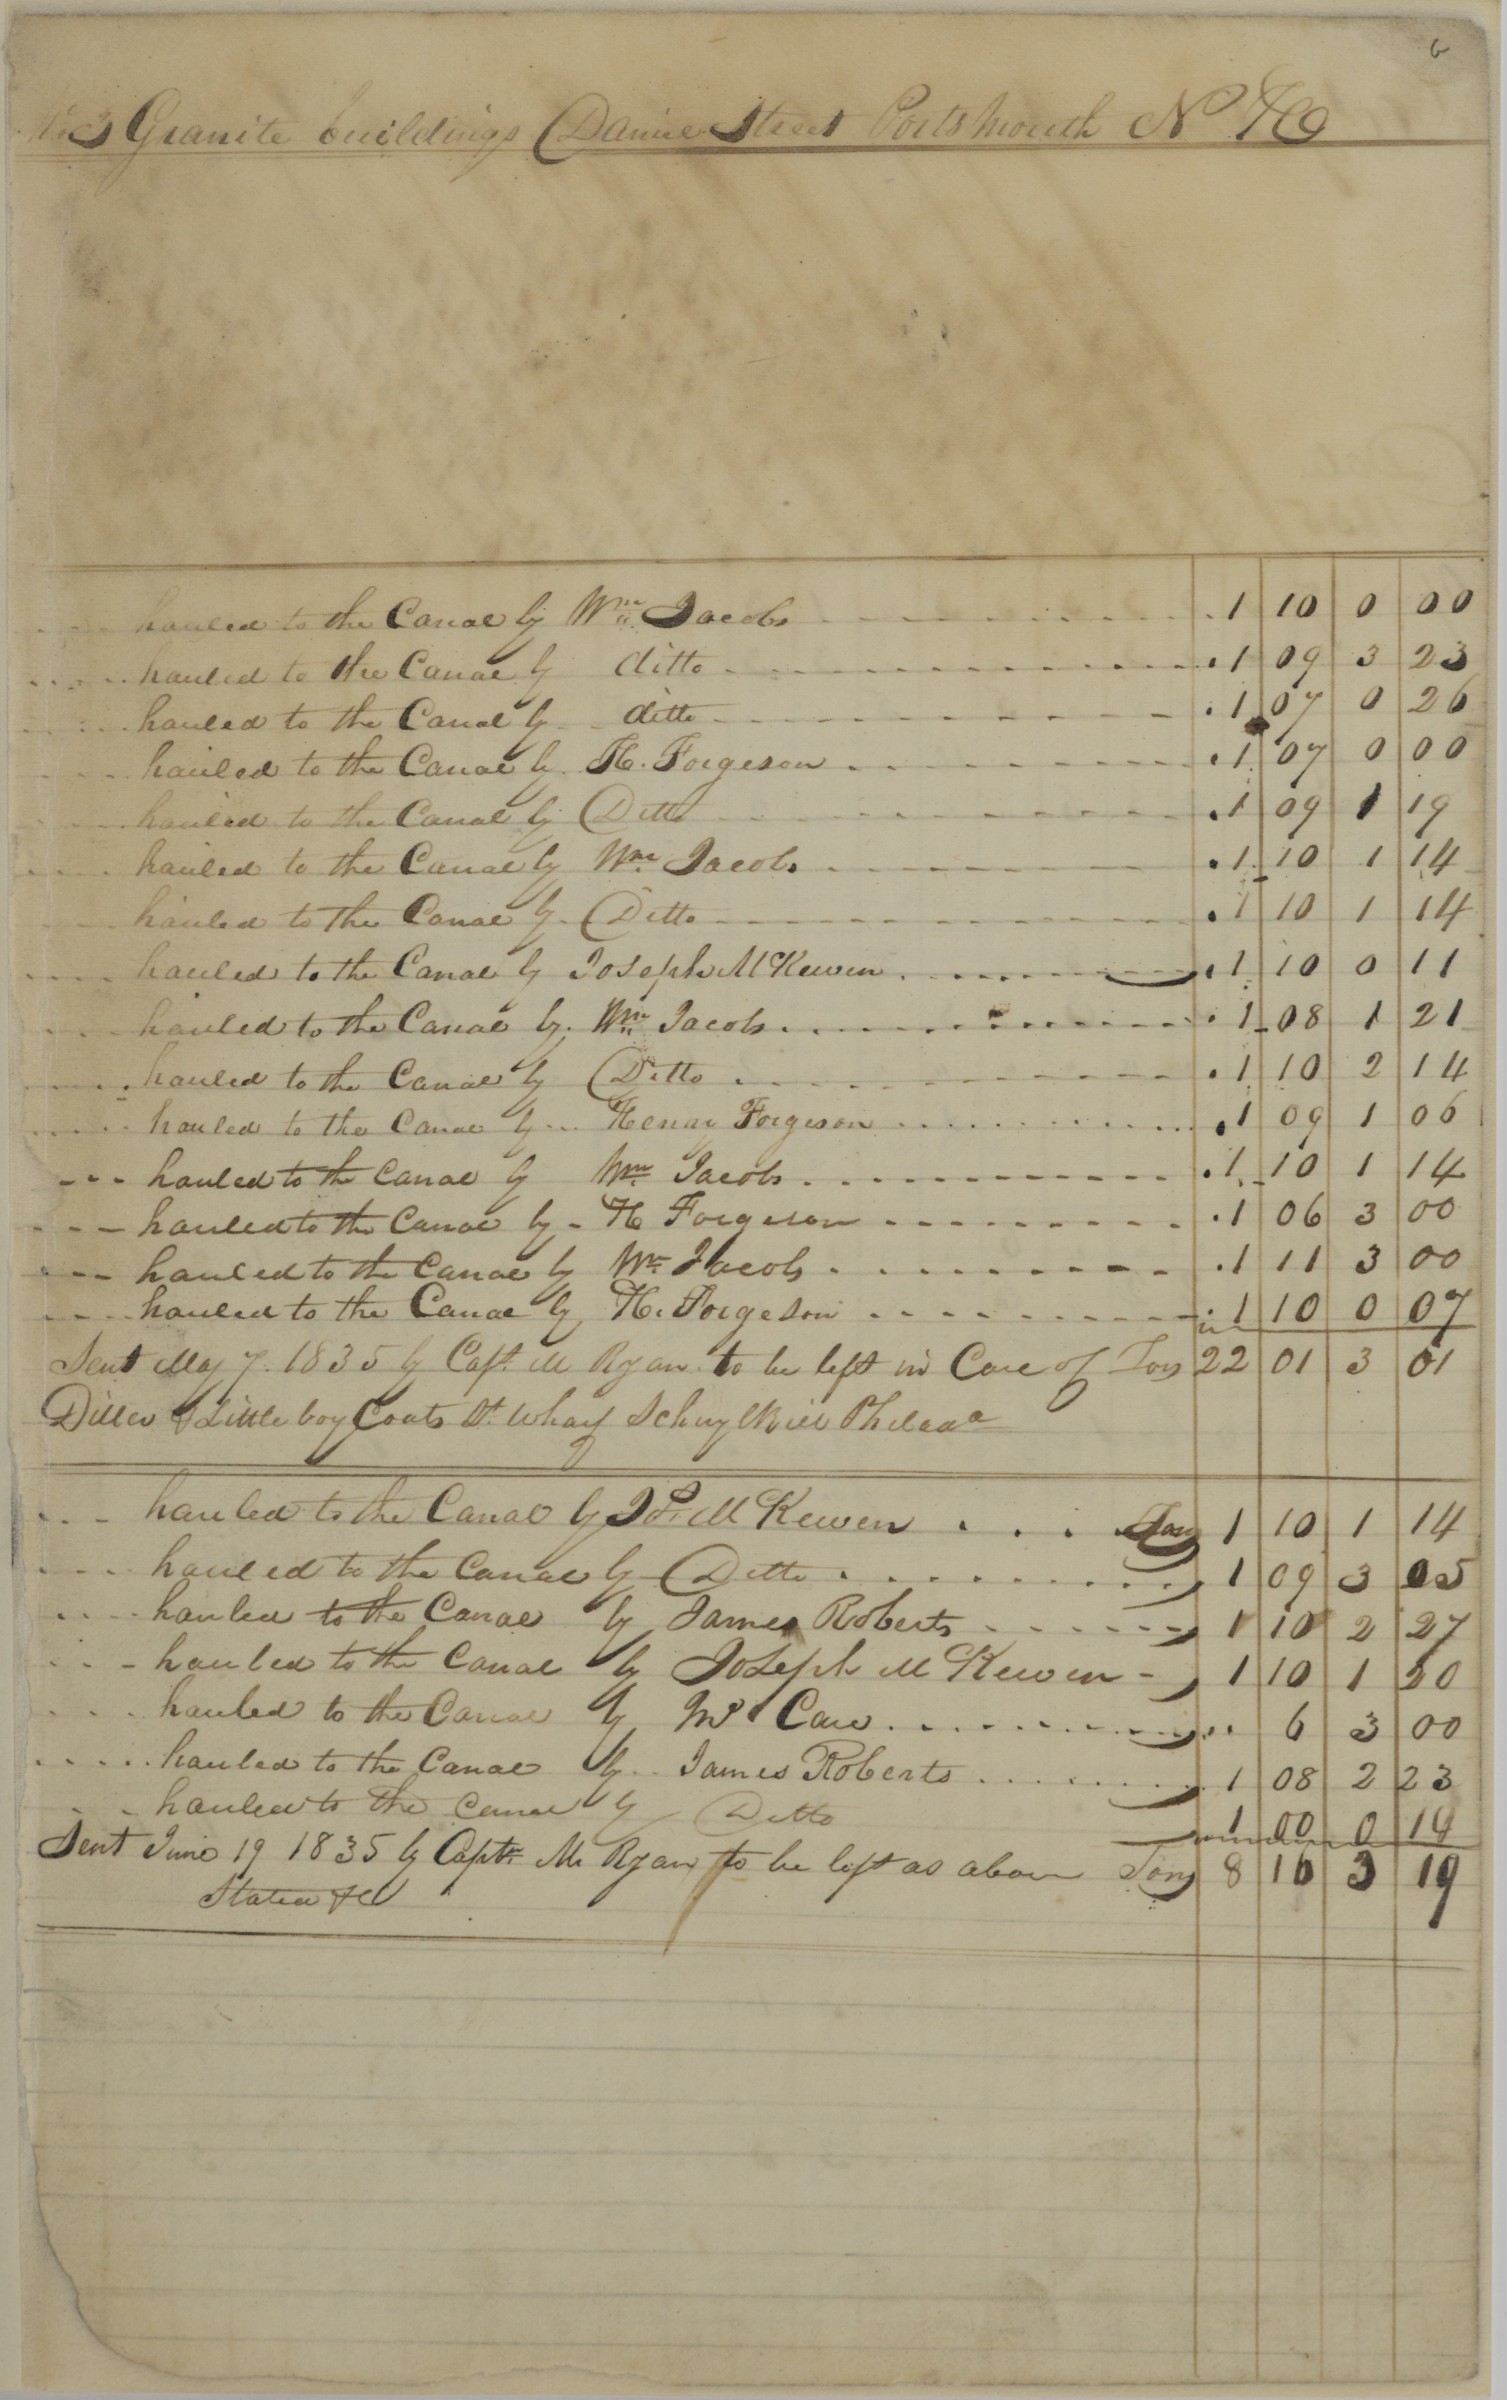 6
Granite buildings Daniel Street Portsmouth N H
hauled to the Canal by Wm Jacobs 1 10 0 00
hauled to the Canal by ditto 1 09 3 23
hauled to the Canal by ditto 1 07 0 26
hauled to the Canal by H. Forgeson 1 07 0 00
hauled to the Canal by Ditto 1 09 1 19
hauled to the Canal by Wm Jacobs 1 10 1 14
hauled to the Canal by Ditto 1 10 1 14
hauled to the Canal by Joseph McKewen 1 10 0 11
hauled to the Canal by Wm Jacobs 1 08 1 21
hauled to the Canal by Ditto 1 10 2 14
hauled to the Canal by Henry Forgeson 1 09 1 06
hauled to the Canal by Wm Jacobs 1 10 1 14
hauled to the Canal by H Forgeson 1 06 3 00
hauled to the Canal by Wm Jacobs 1 11 3 00
hauled to the Canal by H. Forgeson 1 10 0 07
Sent May 7. 1835 by Capt. M Ryan to be left in Care of Tons 22 01 3 01
Diller & Littleboy Coats St. Wharf Schuylkill Philada
hauled to the Canal by Js. McKewen Tons 1 10 1 14
hauled to the Canal by Ditto 1 09 3 05
hauled to the Canal by James Roberts 1 10 2 27
hauled to the Canal by Joseph McKewen 1 10 1 20
hauled to the Canal by 6 3 00
hauled to the Canal by James Roberts 1 08 2 23
hauled to the Canal by Ditto 1 00 0 14
Sent June 19 1835 by Capt. M Ryan to be left as above Tons 8 16 3 19
Stated &c